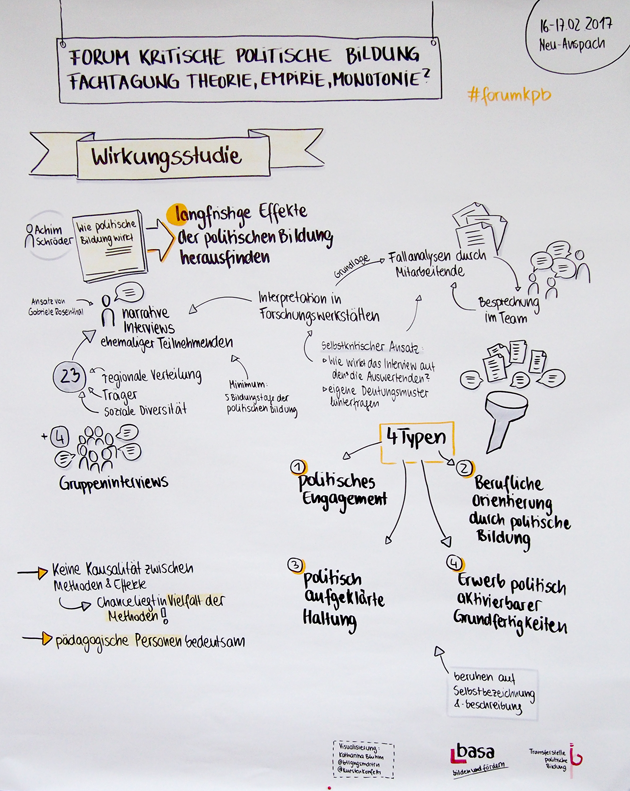 FORUM KRITISCHE POLITISCHE BILDUNG
FACHTAGUNG THEORIE, EMPIRIE, MONOTONIE?
16-17.02 2017
Neu-Anspach
#forumkpb
Wirkungsstudie
Achim
Schröder
Wie politische
Bildung wirkt
langfristige Effekte
der politischen Bildung
herausfinden
Grundlage
Fallanalysen durch
Mitarbeitende
Besprechung
im Team
Ansatz von
Gabriele Rosenthal
narrative
Interviews
ehemaliger Teilnehmenden
Interpretation in
Forschungswerkstätten
Selbstkritischer Ansatz:
Wie wirkt das Interview auf
den/die Auswertenden?
eigene Deutungsmuster
hinterfragen
23
regionale Verteilung
Träger
Soziale Diversität
Minimum:
5 Bildungstage der
politischen Bildung
+ 4
Gruppeninterviews
4 Typen
1
politisches
Engagement
2
Berufliche
Orientierung
durch politische
Bildung
3
politisch
aufgeklärte
Haltung
4
Erwerb politisch
aktivierbarer
Grundfertigkeiten
Keine Kausalität zwischen
Methoden & Effekte
Chance liegt in Vielfalt der
Methoden!
pädagogische Personen bedeutsam
beruhen auf
Selbstbezeichnung
& -beschreibung
Visualisierung:
Katharina
basa
bilden und fördern
Transferstelle
politische
Bildung